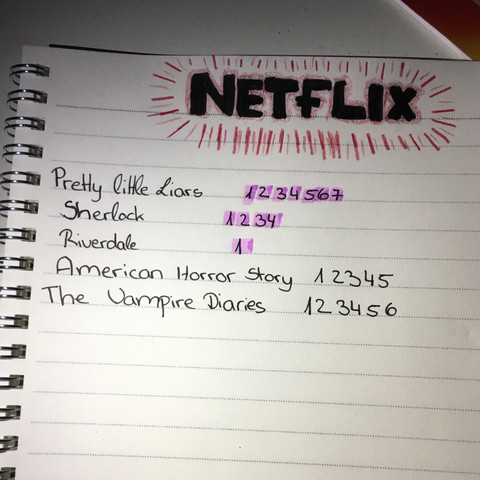 NETFLIX
Pretty little Liars 1234567
Sherlock 1234
Riverdale 1
American Horror Story 12345
The Vampire Diaries 123456